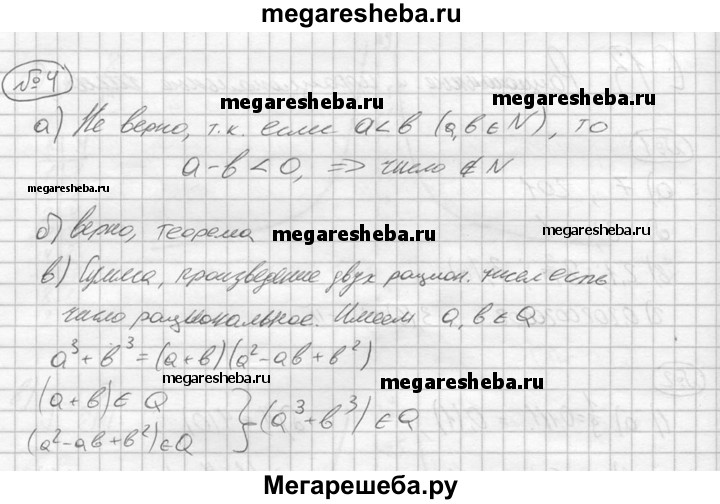 megaresheba.ru
№4
megaresheba.ru
а) Не верно, т.к. если a<в (a,в∈N), то
a-в<0, => число ∉ N
megaresheba.ru
б) верно, теорема
megaresheba.ru
megaresheba.ru
в) Сумма, произведение двух рацион. чисел есть
число рациональное. Имеем a, в ∈ Q
a³+в³=(a+в)(a²-aв+в²)
megaresheba.ru
(a+в)∈Q
(a²-aв+в²)∈Q } -(a³+в³)∈Q
megaresheba.ru
Мегарешеба.ру